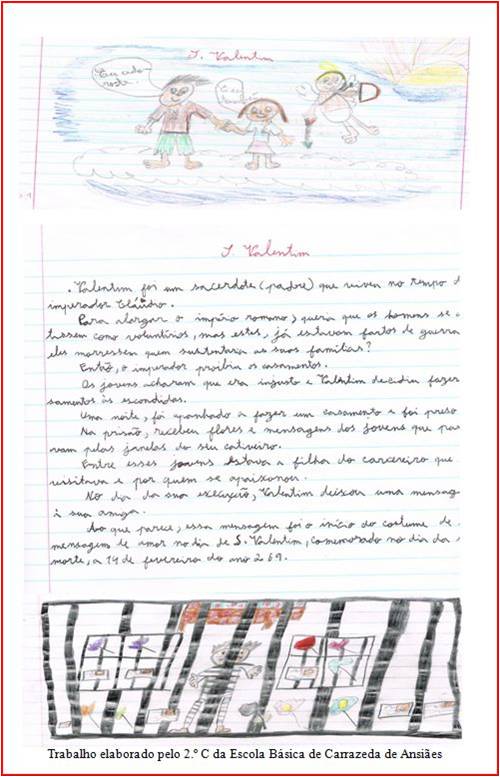 S. Valentim
Eu ado-
ro-te.
S. Valentim
Valentim foi um sacerdote (padre) que viveu no tempo d
imperador Cláudio.
Para alargar o império romano, queria que os homens se a
tassem como voluntários, mas estes, já estavam fartos de guerra
eles morressem quem sustentaria as suas famílias?
Então, o imperador proibiu os casamentos.
Os jovens acharam que era injusto e Valentim decidiu fazer
samentos às escondidas.
Uma noite, foi apanhado a fazer um casamento e foi preso
Na prisão, recebeu flores e mensagens dos jovens que pas
vam pelas janelas do seu cativeiro.
Entre esses jovens estava a filha do carcereiro que
visitava e por quem se apaixonou.
No dia da sua execução, Valentim deixou uma mensag
à sua amiga.
Ao que parece, essa mensagem foi o início do costume de
mensagem de amor no dia de S. Valentim, comemorado no dia da s
morte, a 14 de fevereiro do ano 269.
Trabalho elaborado pelo 2.º C da Escola Básica de Carrazeda de Ansiães